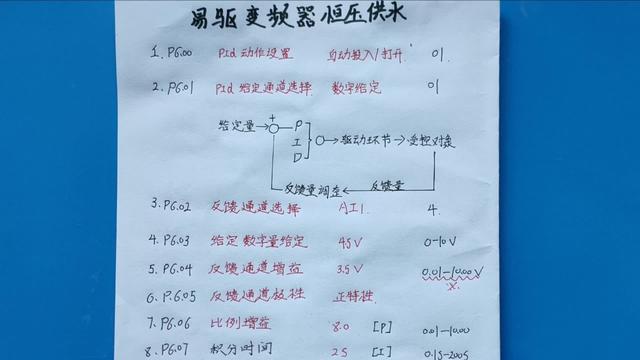 易驱变频器恒压供水
1. P6.00 PId 动作设置 自动投入/打开 01
2. P6.01 PId 给定通道选择 数字给定 01
给定量 + P
I 驱动环节 受控对象
D
反馈量调整 反馈量
3. P6.02 反馈通道选择 AI1. 4.
4. P6.03 给定数字量给定 45V 0-10V
5. P6.04 反馈通道增益 3.5V 0.01-10.00V
x
6. P.6.05 反馈通道极性 正特性.
7. P6.06 比例增益 8.0 [P] 0.01-10.00
8. P6.07 积分时间 2S [I] 0.1S-200S